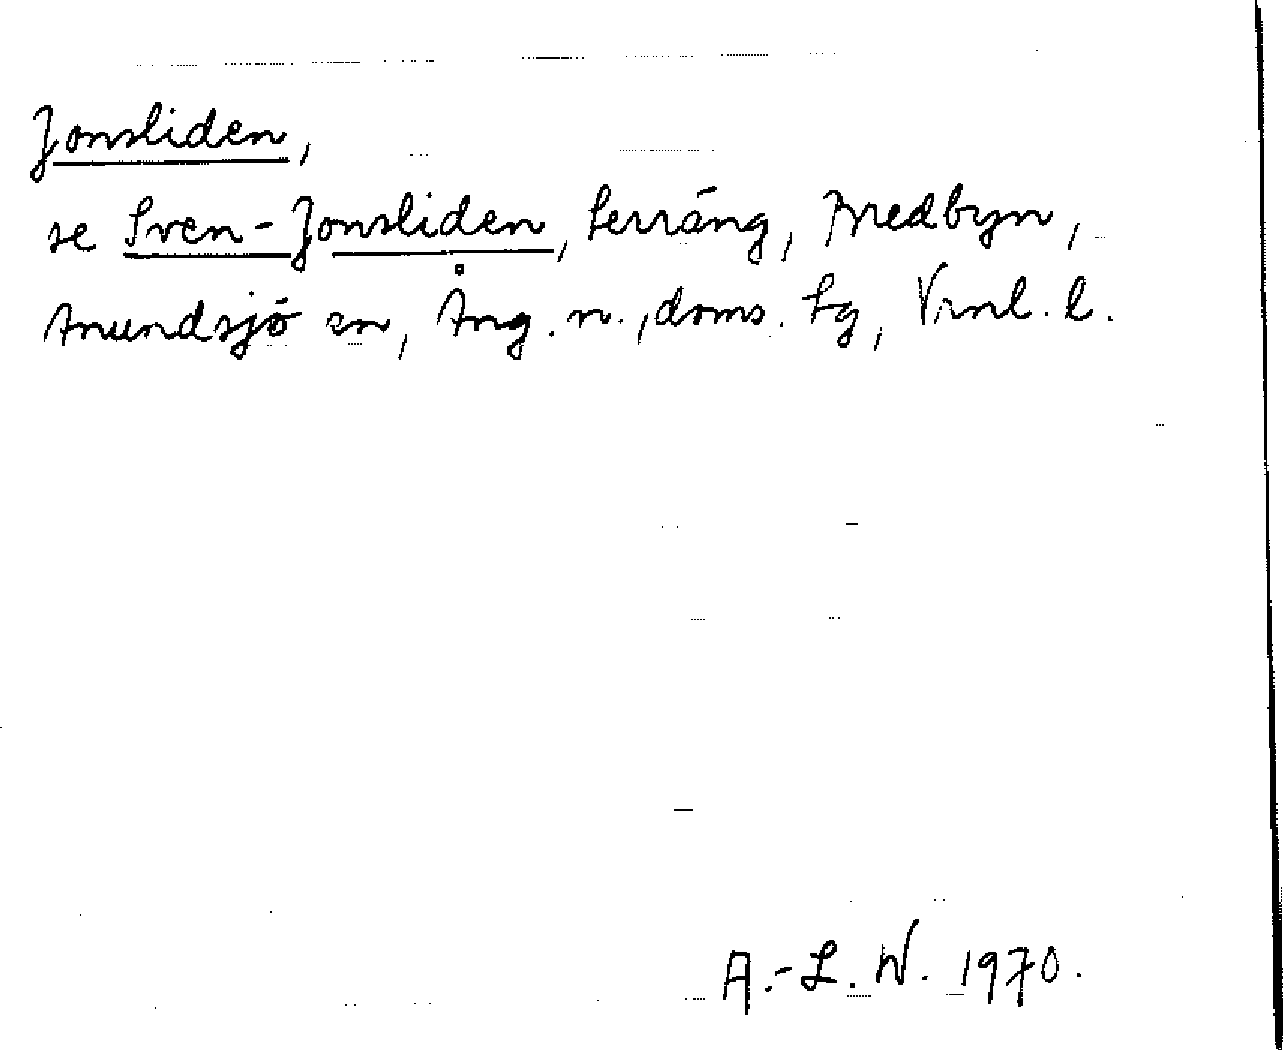 Jonsliden,
se Sven-Jonsliden, terräng, Bredbyn,
Anundsjö sn, Ång. n., doms. tg, Vrnl. l.
A.-L. W. 1970.